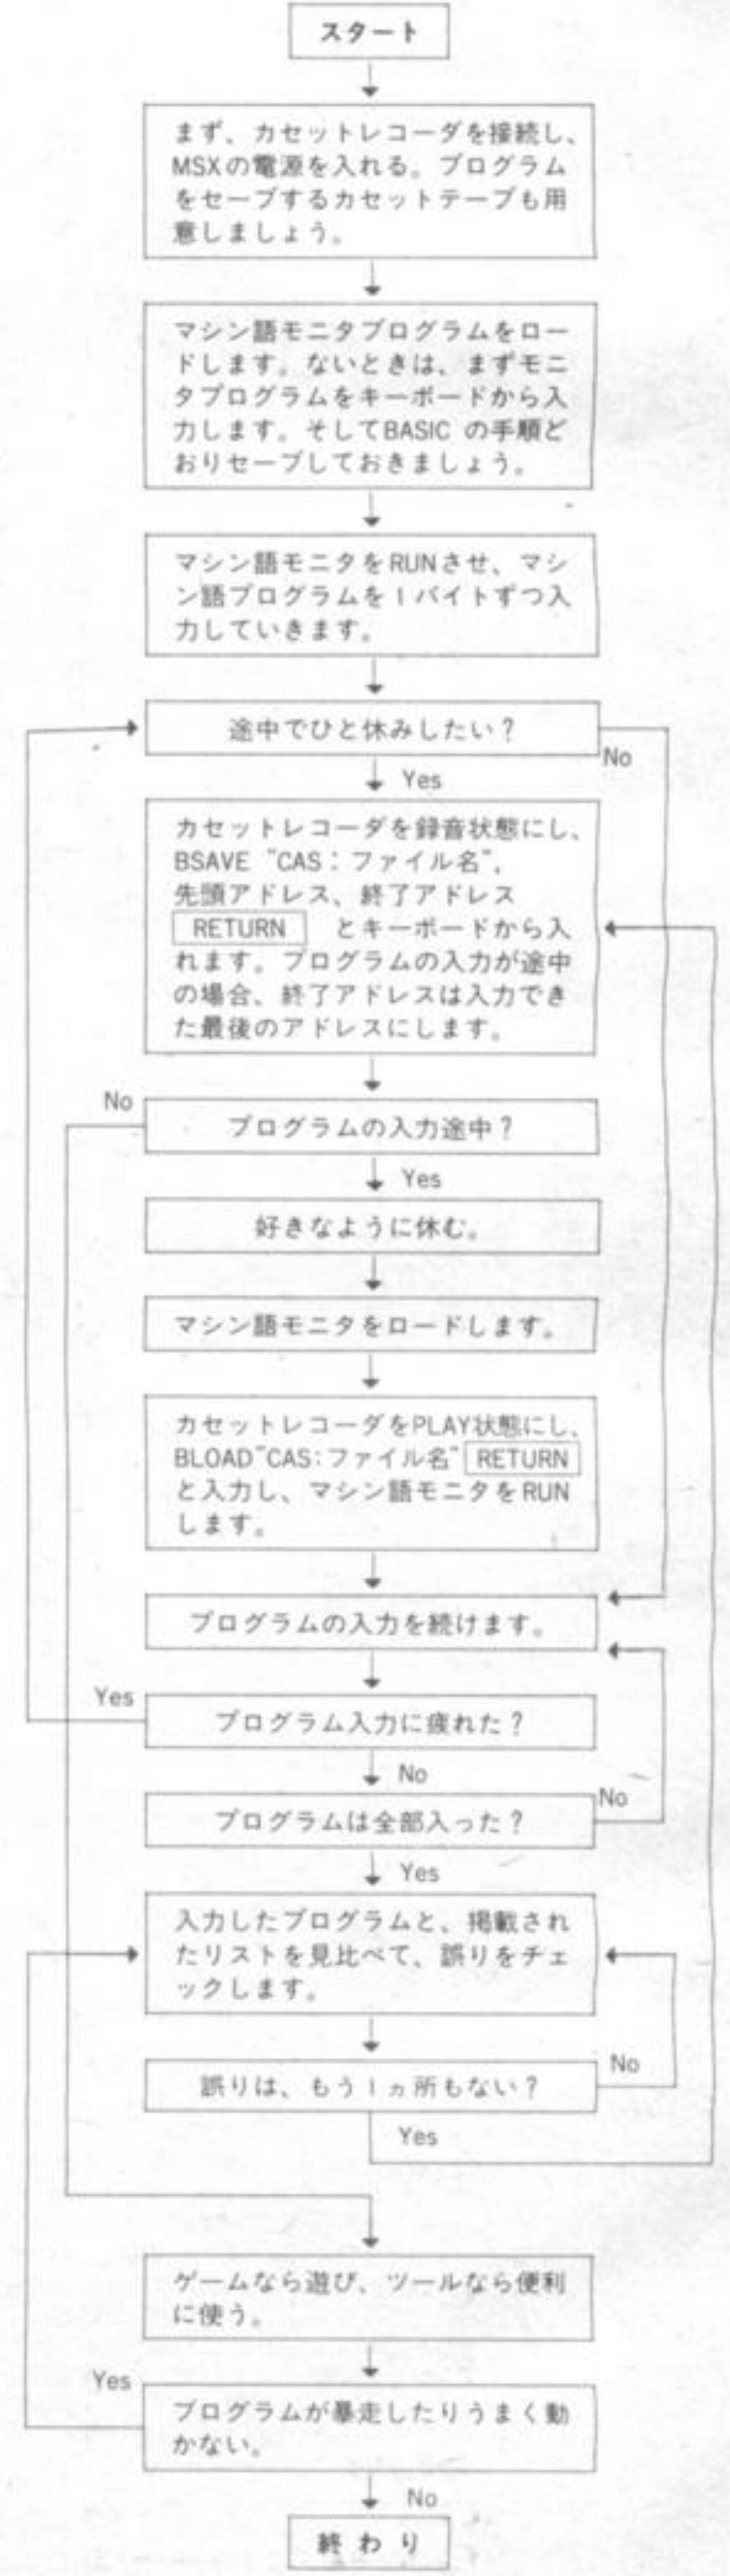 スタート
まず、カセットレコーダを接続し、
MSXの電源を入れる。プログラム
をセーブするカセットテープも用
意しましょう。
マシン語モニタプログラムをロー
ドします。ないときは、まずモニ
タプログラムをキーボードから入
力します。そしてBASIC の手順ど
おりセーブしておきましょう。
マシン語モニタをRUNさせ、マシ
ン語プログラムを1バイトずつ入
力していきます。
途中でひと休みしたい？
No
Yes
カセットレコーダを録音状態にし、
BSAVE "CAS：ファイル名",
先頭アドレス、終了アドレス
RETURN とキーボードから入
れます。プログラムの入力が途中
の場合、終了アドレスは入力でき
た最後のアドレスにします。
No
プログラムの入力途中？
Yes
好きなように休む。
マシン語モニタをロードします。
カセットレコーダをPLAY状態にし、
BLOAD"CAS:ファイル名" RETURN
と入力し、マシン語モニタをRUN
します。
プログラムの入力を続けます。
Yes
プログラム入力に疲れた？
No
No
プログラムは全部入った？
Yes
入力したプログラムと、掲載され
たリストを見比べて、誤りをチェ
ックします。
No
誤りは、もう1ヵ所もない？
Yes
ゲームなら遊び、ツールなら便利
に使う。
Yes
プログラムが暴走したりうまく動
かない。
No
終わり